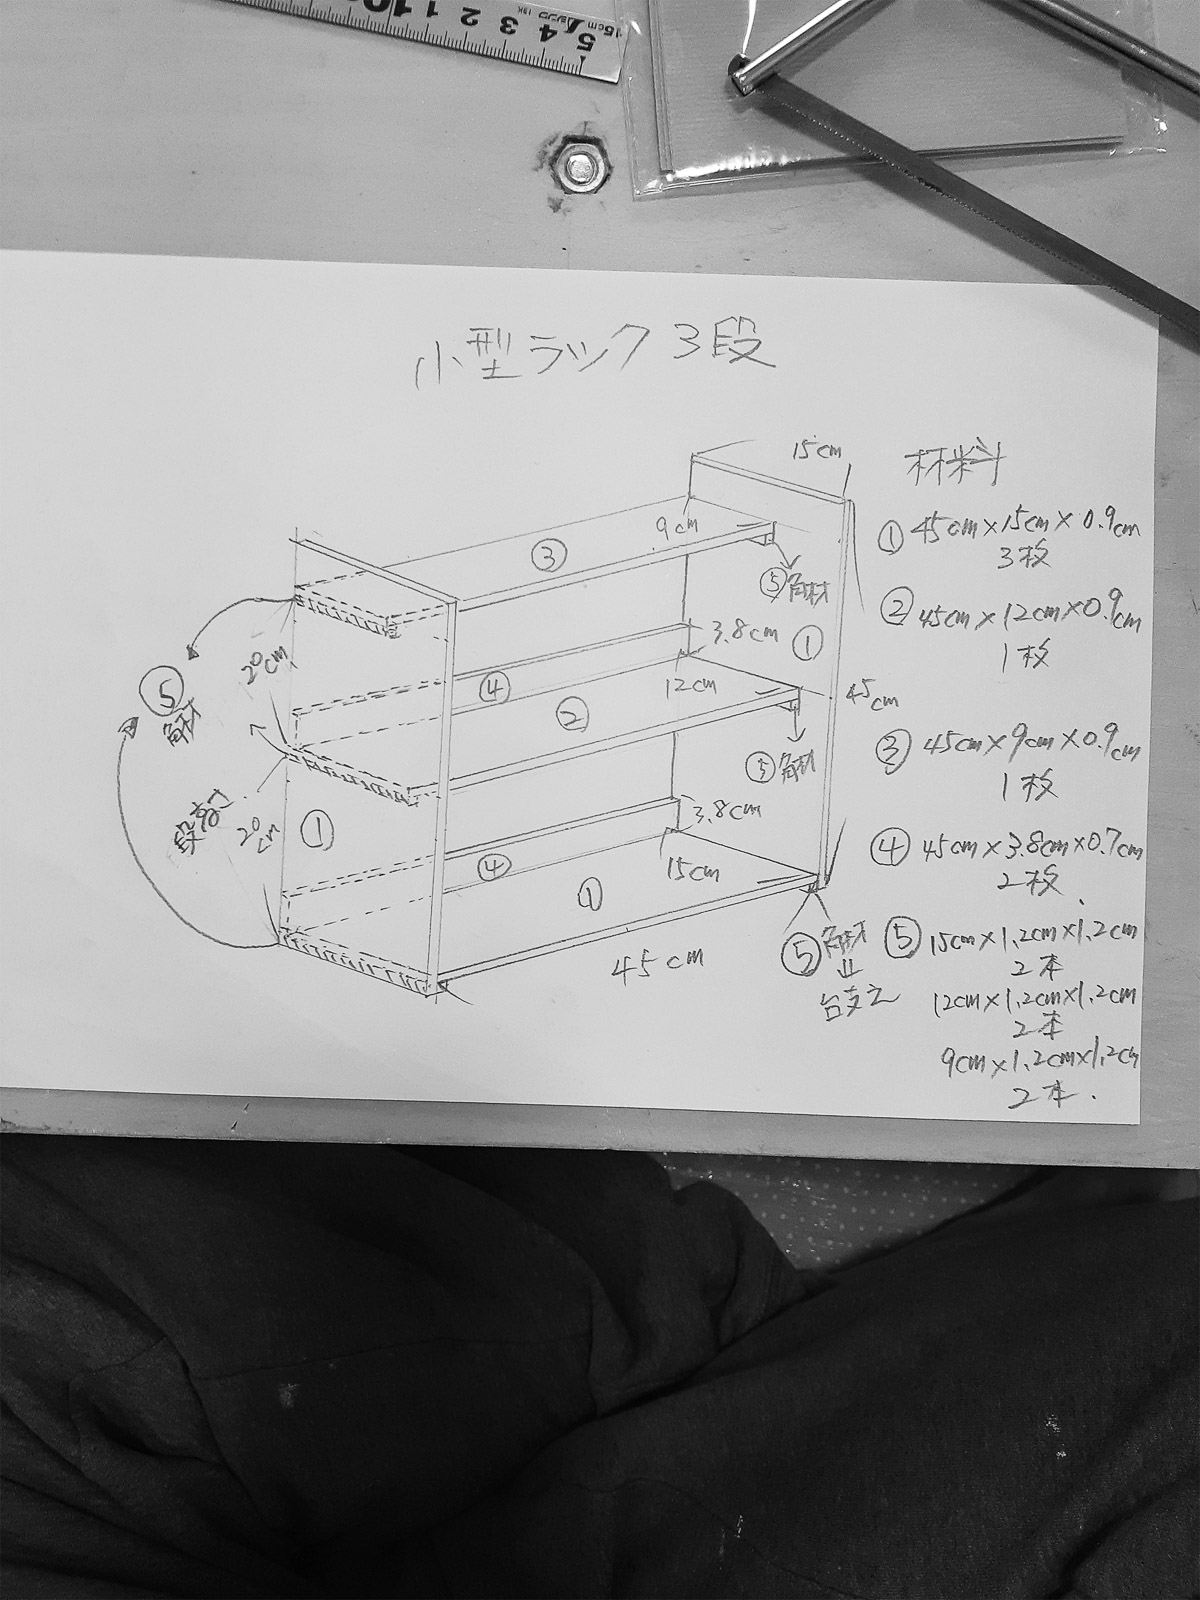 小型ラック3段
15cm
材料
① 45cm×15cm×0.9cm
3枚
② 45cm×12cm×0.9cm
1枚
③ 45cm×9cm×0.9cm
1枚
④ 45cm×3.8cm×0.7cm
2枚
⑤ 15cm×1.2cm×1.2cm
2本
12cm×1.2cm×1.2cm
2本
9cm×1.2cm×1.2cm
2本.
9cm
③
⑤角材
3.8cm
①
20cm
④
12cm
45cm
⑤
角材
②
⑤角材
段高さ
20cm
①
3.8cm
④
15cm
①
45cm
⑤角材
台支え
15cm
1 2 3 4 5